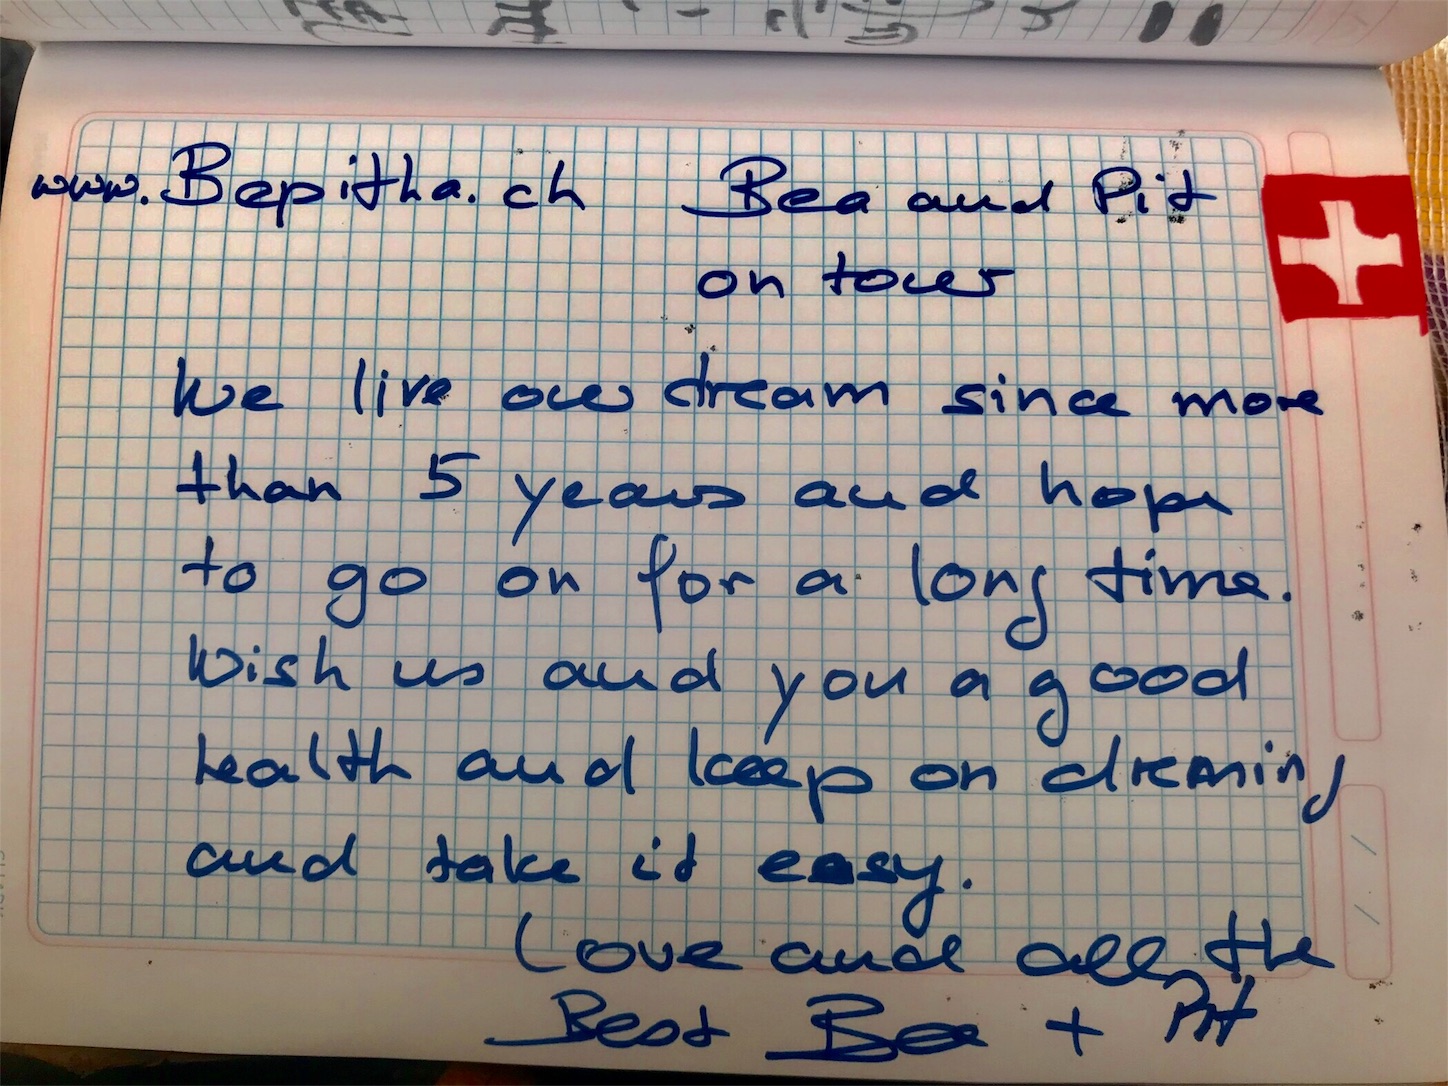 www.Bepitha.ch Bea and Pit
on tour
We live our dream since more
than 5 years and hope
to go on for a long time.
Wish us and you a good
health and keep on dreaming
and take it easy.
Love and all the
Best Bea + Pit